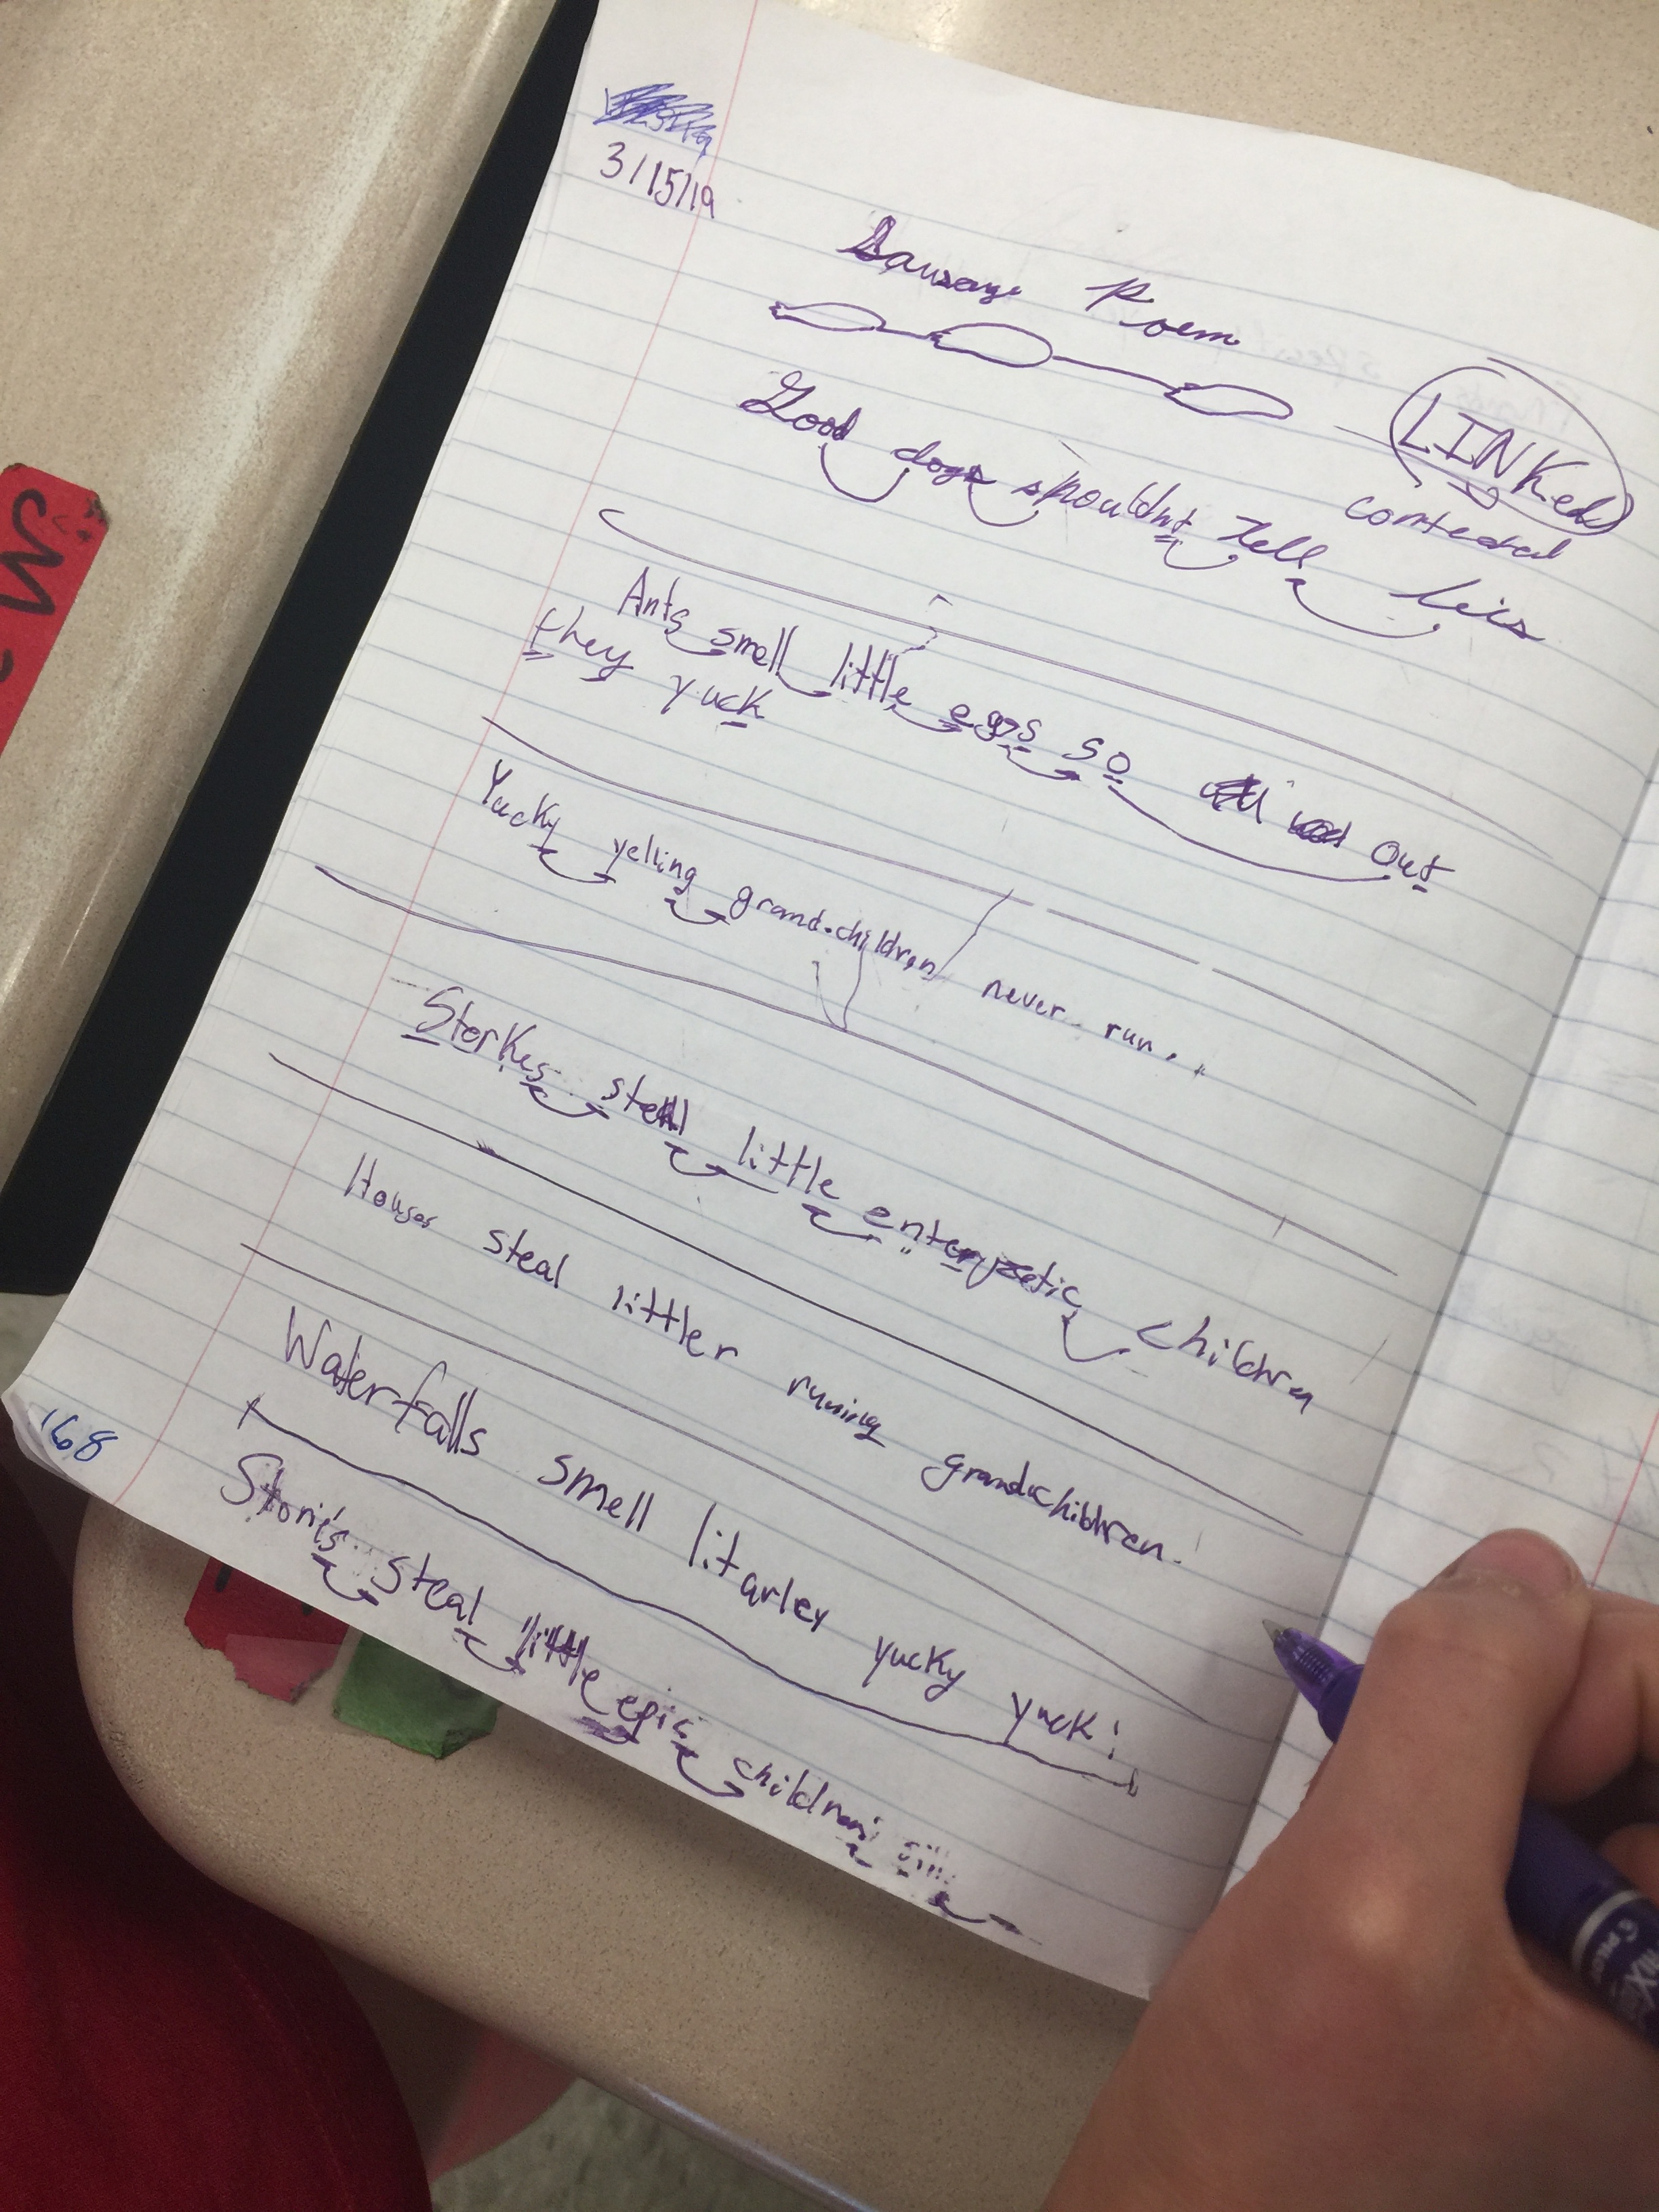 3/15/19
Sausage Poem
LINKed
conteced
Good dogs shouldnt tell lies
Ants smell little eggs so out
they yuck
Yucky yelling grand-children never run.
Storkes steal little enteryetic children
Houses steal littler runing grandchildren.
Waterfalls smell litarley yucky yuck!
Storis steal little epic children
168
W
PILOT